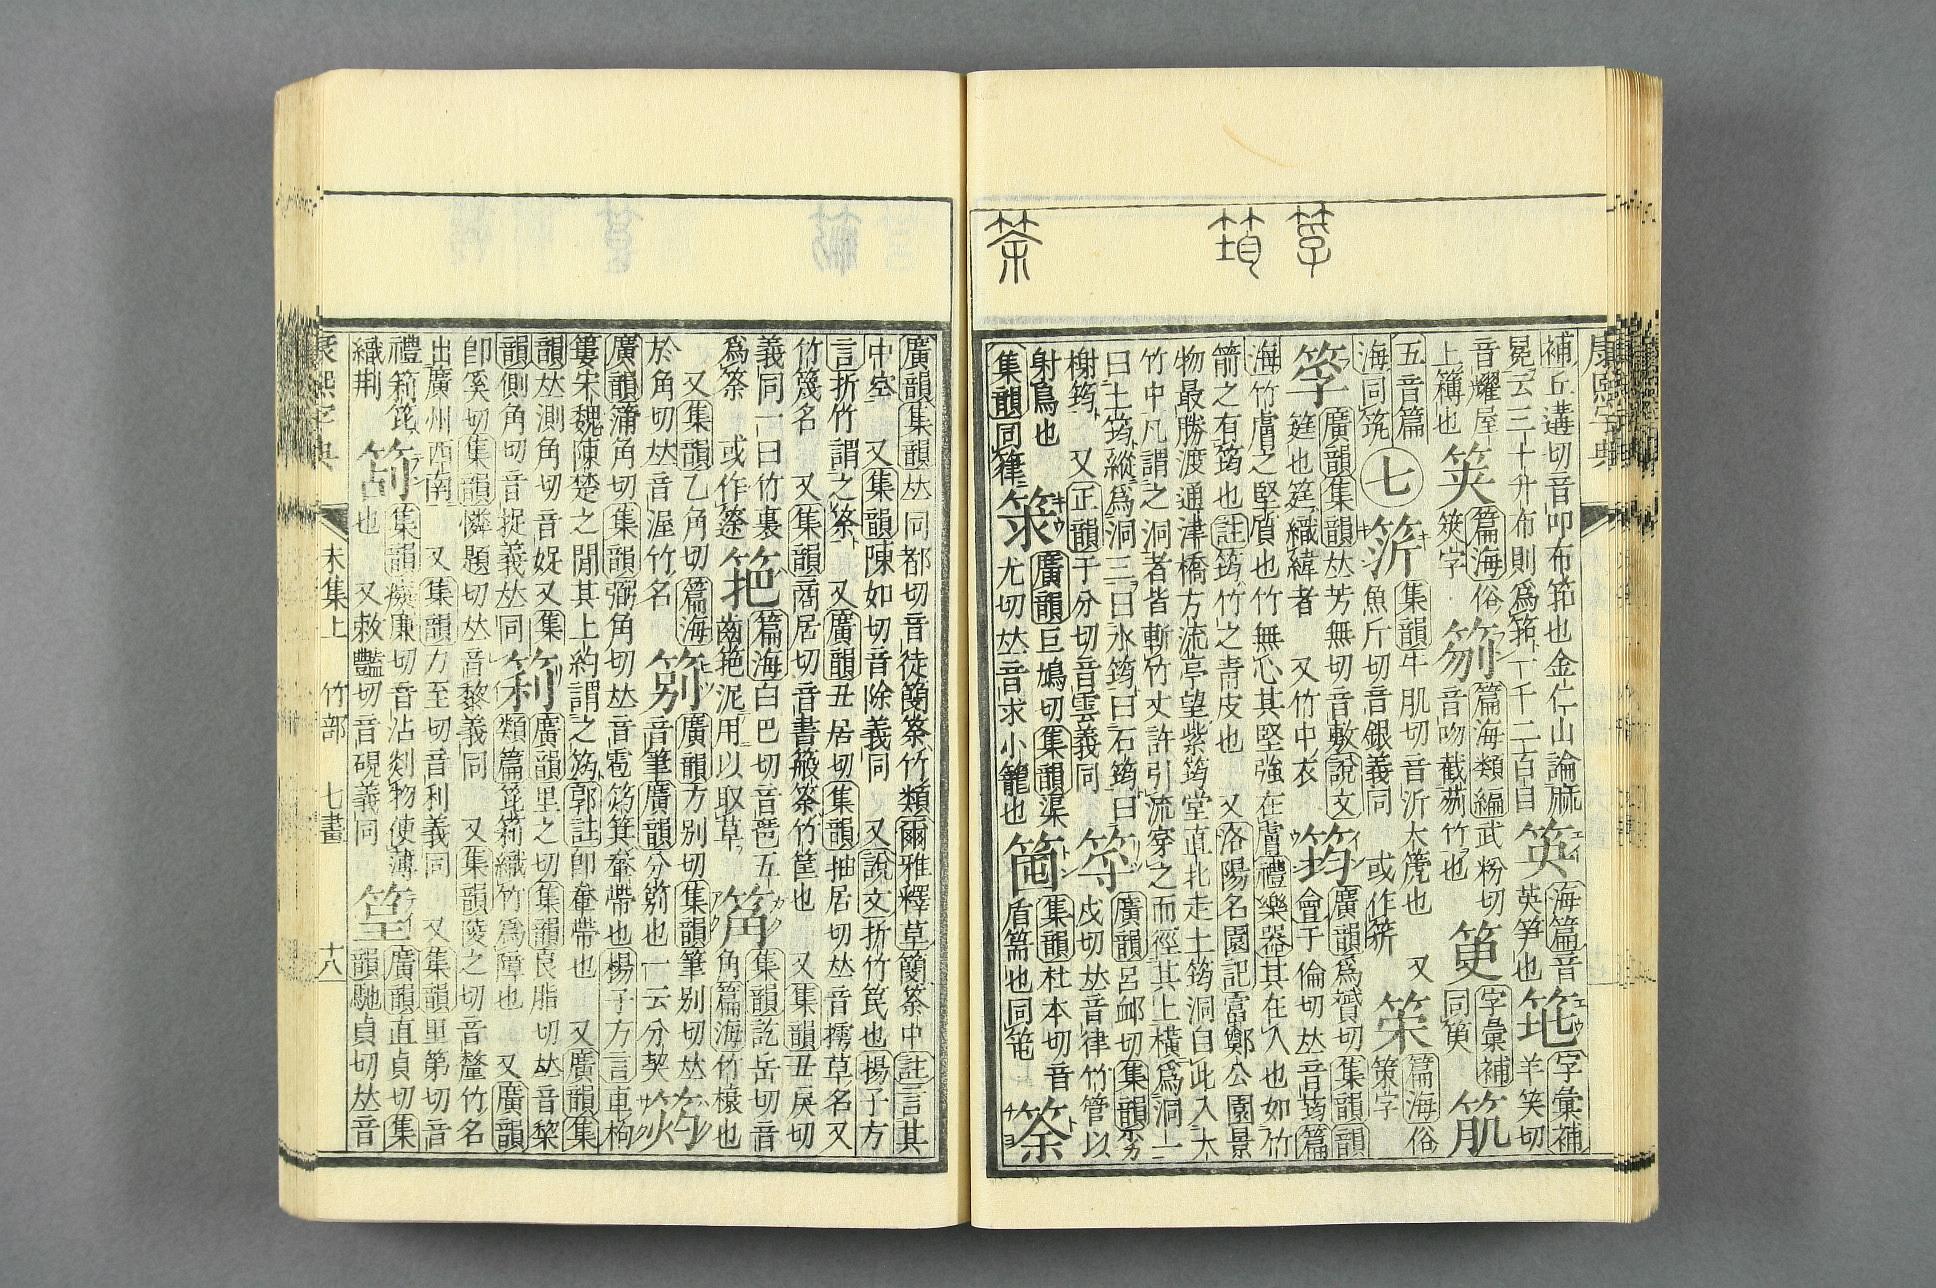 莩 筠 筡
康熙字典
補丘遘切音叩布筘也金仁山論麻
冕云三十升布則爲筘一千二百目
筴
海篇音
英筝也
䇣
字彙補
羊笑切
音耀屋
上簿也
筴
篇海俗
筴字
篇海類編武粉切
音吻截茘竹也
筻
字彙補
同筻
五音篇
海同筑
七
集韻牛肌切音沂大篪也 又
魚斤切音銀義同 或作䉣
篇海俗
策字
筟
廣韻集韻𠀤芳無切音敷說文
筳也筳織緯者 又竹中衣
筠
廣韻爲贇切集韻韻
會于倫切𠀤音蒷篇
海竹膚之堅質也竹無心其堅強在膚禮樂器其在人也如竹
箭之有筠也註筠竹之靑皮也 又洛陽名園記富鄭公園景
物最勝渡通津橋方流亭望紫筠堂直北走土筠洞自此入大
竹中凡謂之洞者皆斬竹丈許引流穿之而徑其上橫爲洞一
曰土筠縱爲洞三曰水筠曰石筠曰
榭筠 又正韻于分切音雲義同
廣韻呂䘏切集韻劣
戍切𠀤音律竹管以
射鳥也
集韻同䇖
筞
廣韻巨鳩切集韻渠
尤切𠀤音求小籠也
集韻杜本切音
盾篅也同笔
筡
廣韻集韻𠀤同都切音徒簢筡竹類爾雅釋草簢筡中註言其
中空 又集韻陳如切音除義同 又說文折竹笢也揚子方
言折竹謂之筡 又廣韻丑居切集韻抽居切𠀤音攄草名又
竹篾名 又集韻商居切音書䉠筡竹筐也 又集韻丑戾切
義同一曰竹裏
爲筡 或作篴
䈈
篇海白巴切音琶五
齒䈈泥用以取草
筩
集韻訖岳切音
角篇海竹榱也
又集韻乙角切
於角切𠀤音渥竹名
䇷
廣韻方別切集韻筆別切𠀤
音筆廣韻分䇷也一云分契
筠
廣韻蒲角切集韻弼角切𠀤音雹筠箕牽帶也揚子方言車枸
簍宋魏陳楚之閒其上約謂之筠郭註卽牽帶也 又廣韻集
韻𠀤測角切音娖又集
韻側角切音捉義𠀤同
筣
廣韻里之切集韻良脂切𠀤音黎
類篇筣織竹爲障也 又廣韻
卽奚切集韻憐題切𠀤音黎義同 又集韻陵之切音釐竹名
出廣州西南 又集韻力至切音利義同 又集韻里第切音
禮筣筐
織荆
集韻癡廉切音沾剡物使薄
也 又敕豔切音硯義同
廣韻直貞切集
韻馳貞切𠀤音
康熙字典 未集上 竹部 七畫 十八